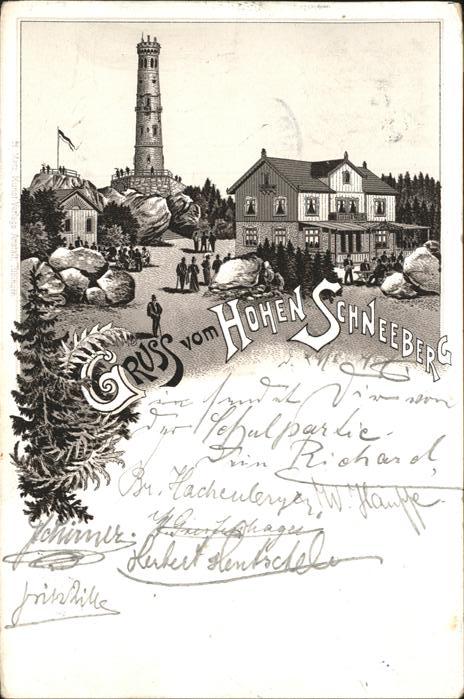 GRUSS vom HOHEN SCHNEEBERG
sendet Dir von
der Schulpartie.
Dein Richard,
Br. Hachenberger, W. Hauffe.
Schirmer.
Herbert Hentschel
Fritz Zille